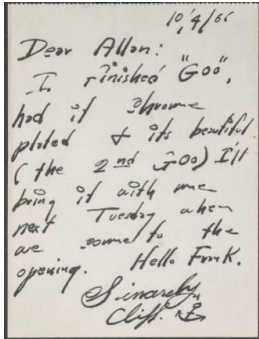 10/4/66
Dear Allan:
I finished "Goo",
had it chrome
plated & its beautiful
( the 2nd Goo) I'll
bring it with me
next Tuesday when
we come to the
opening. Hello Frank.
Sincerely
Cliff.